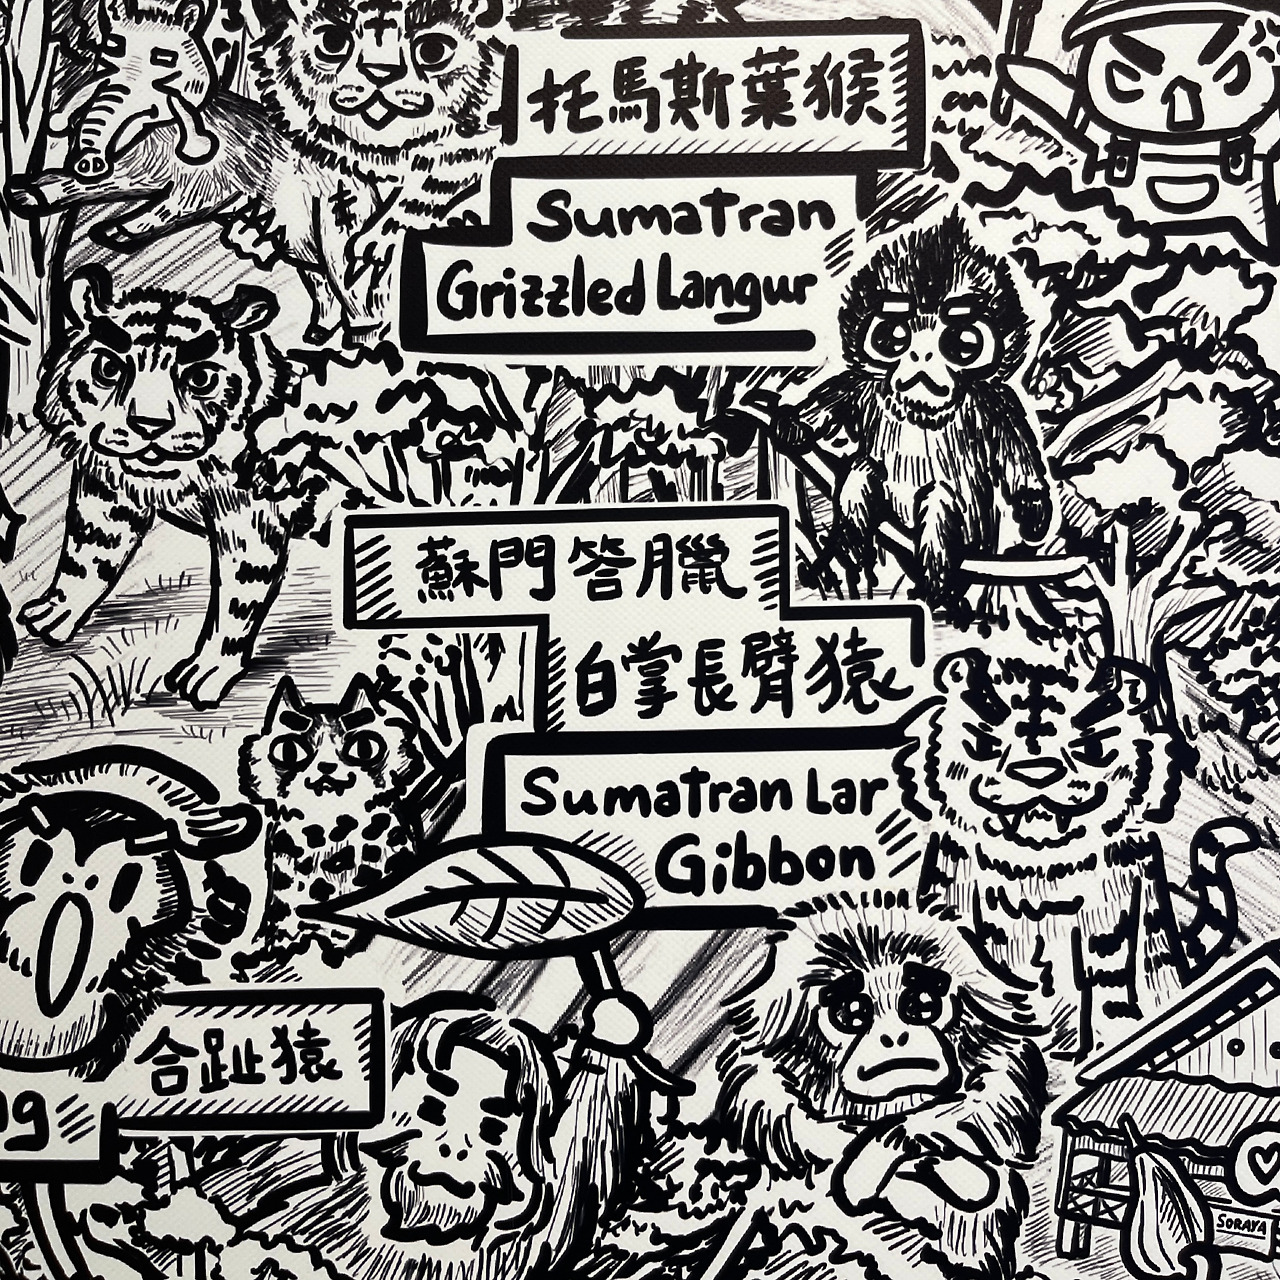 托馬斯葉猴
Sumatran
Grizzled Langur
蘇門答臘
白掌長臂猿
Sumatran Lar
Gibbon
合趾猿
SORAYA